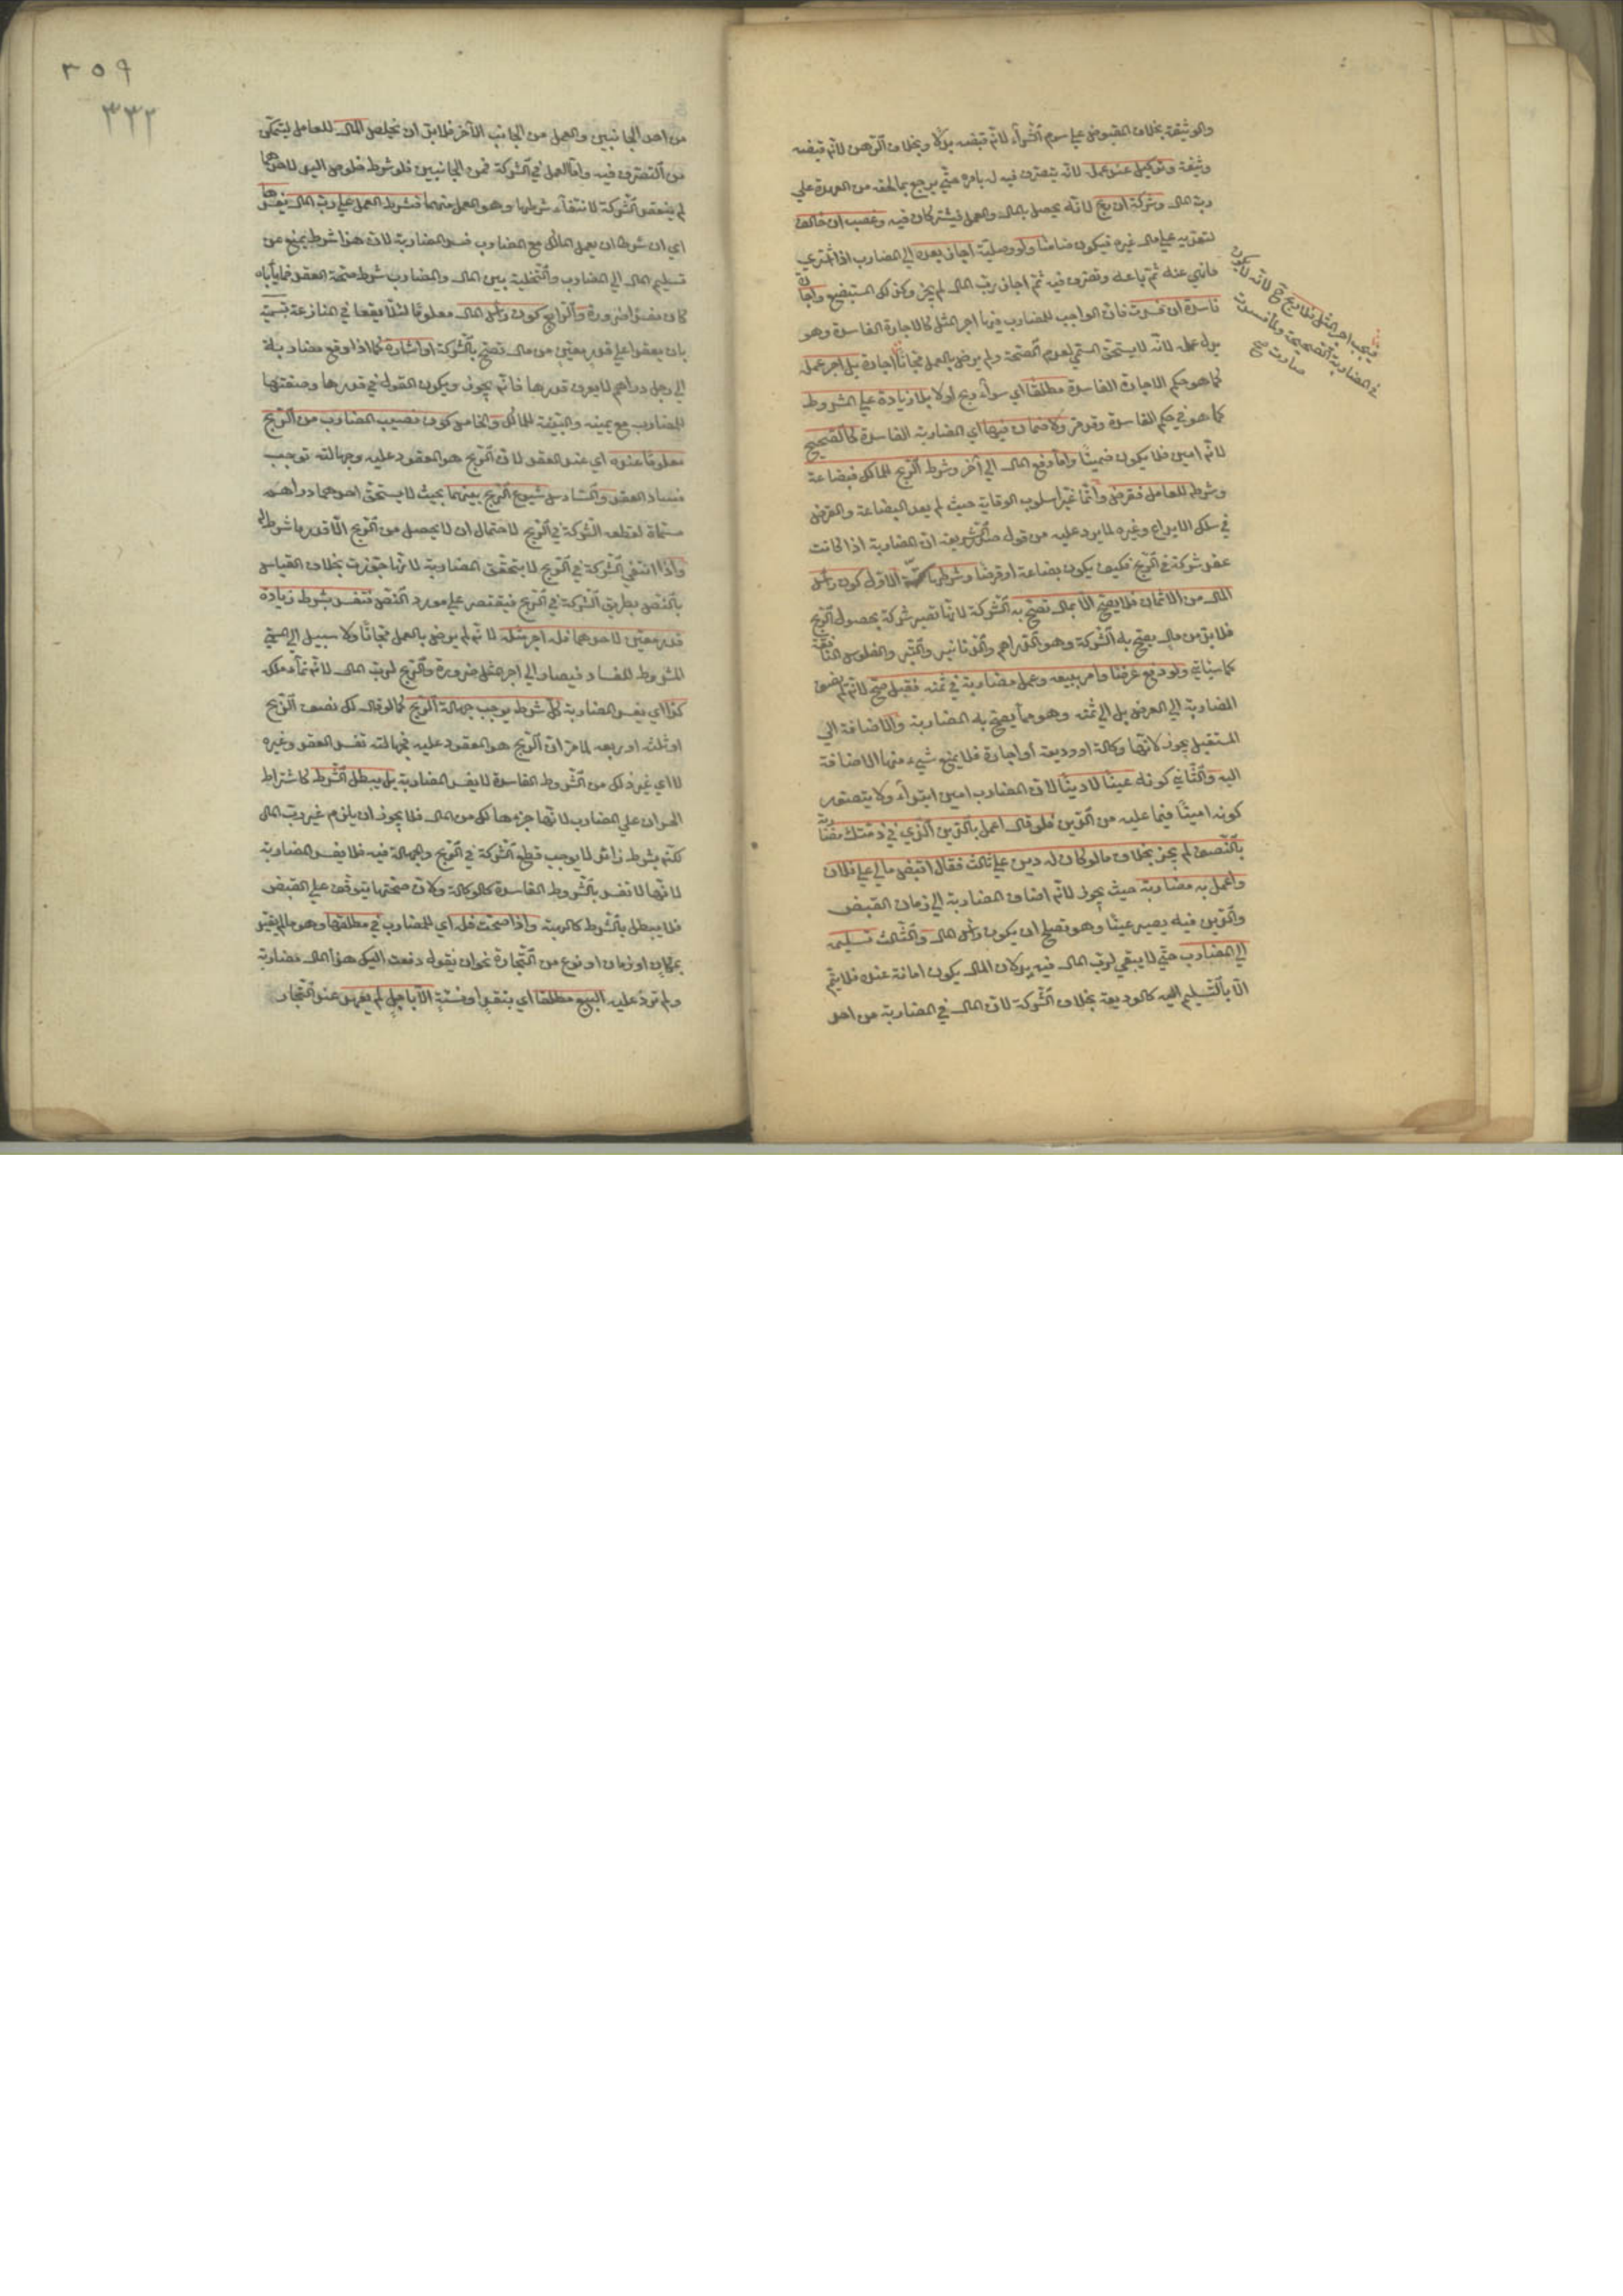 والوثيقة بخلاف المقبوض على سوم الشراء لانه قبضه بدلا وبخلاف الرهن لانه قبضه
وثيقة وتوكيل عند عمله لانه يتصرف فيه له بامره حتى يرجع بما لحقه من العهدة على
رب المال وشركة ان ربح لانه يحصل بالمال والعمل فيشتركان فيه وغصب ان خالف
لتعديه على مال غيره فيكون ضامنا ولو وصلية اجاز بعده اي المضارب اذا اشترى
ما نهي عنه ثم باعه وتصرف فيه ثم اجاز رب المال لم يجز وكذلك المستبضع واجارة
فاسدة ان فسدت فان الواجب للمضارب فيها اجر المثل كالاجارة الفاسدة وهو
بدل عمله لانه لا يستحق المسمى لعدم الصحة ولم يرض بالعمل مجانا اجارة بل اجر عمله
كما هو حكم الاجارة الفاسدة مطلقا اي سواء ربح اولا بلا زيادة على المشروط
كما هو في حكم الفاسدة وقد مر ولا ضمان فيها اي المضاربة الفاسدة كالصحيح
لانه امين فلا يكون ضمينا واما دفع المال الى آخر وشرط الربح للمالك فبضاعة
وشرطه للعامل فقرض وانما غير اسلوب الوقاية حيث لم يعد البضاعة والقرض
في سلك الايداع وغيره لما يرد عليه من قول صدر الشريعة ان المضاربة اذا كانت
عقد شركة في الربح فكيف يكون بضاعة او قرضا وشرطها ستة الاول كون رأس
المال من الاثمان فلا يصح الا بمال تصح به الشركة لانها تصير شركة بحصول الربح
فلا بد من مال يصح به الشركة وهو الدراهم والدنانير والتبر والفلوس النافقة
كما سيأتي ولو دفع عرضا وامر ببيعه وعمل مضاربة في ثمنه فقبل صح لانه لم يضف
المضاربة الى العرض بل الى ثمنه وهو مما يصح به المضاربة والاضافة الى
المستقبل يجوز لانها وكالة او وديعة او اجارة فلا يمنع شيء منها الاضافة
اليه والثاني كونه عينا لا دينا لان المضارب امين ابتداء ولا يتصور
كونه امينا فيما عليه من الدين فلو قال اعمل بالدين الذي في ذمتك مضاربة
بالنصف لم يجز بخلاف ما لو كان له دين على ثالث فقال اقبض مالي على فلان
واعمل به مضاربة حيث يجوز لانه اضاف المضاربة الى زمان القبض
والدين فيه يصير عينا وهو تصلح ان يكون رأس مال والثالث تسليمه
الى المضارب حتى لا يبقى لرب المال فيه يد لان المال يكون امانة عنده فلا يتم
الا بالتسليم اليه كالوديعة بخلاف الشركة لان المال في المضاربة من احد
فيجب اجر المثل بلا ربح لانه لا يكون
في المضاربة الصحيحة ولما فسدت
صارت صح
٣٥٩
٣٣٢
من احد الجانبين والعمل من الجانب الآخر فلا بد ان يخلص المال للعامل ليتمكن
من التصرف فيه واما العمل في الشركة فمن الجانبين فلو شرط خلوص اليد لاحدهما
لم ينعقد الشركة لانتفاء شرطها وهو العمل منهما فشرط العمل على رب المال يفسدها
اي ان شرط ان يعمل المالك مع المضارب فسد المضاربة لان هذا شرط يمنع من
تسليم المال الى المضارب والتخلية بين المال والمضارب شرط صحة العقد فما يأباه
كان مفسدا ضرورة والرابع كون رأس المال معلوما لئلا يقعا في المنازعة تسمية
بان يعقدا على قدر معين من مال تصح بالشركة او اشارة كما اذا دفع مضاربة
الى رجل دراهم لا يعرف قدرها فانه يجوز ويكون القول في قدرها وصفتها
للمضارب مع يمينه والبينة للمالك والخامس كون نصيب المضارب من الربح
معلوما عنده اي عند العقد لان الربح هو المعقود عليه وجهالته توجب
فساد العقد والسادس شيوع الربح بينهما بحيث لا يستحق احدهما دراهم
مسماة لقطعه الشركة في الربح لاحتمال ان لا يحصل من الربح الا قدر ما شرط له
واذا انتفى الشركة في الربح لا يتحقق المضاربة لانها جوزت بخلاف القياس
بالنص بطريق الشركة في الربح فيقتصر على مورد النص فتفسد بشرط زيادة
قدر معين لاحدهما فله اجر مثله لانه لم يرض بالعمل مجانا ولا سبيل الى المسمى
المشروط للفساد فيصار الى اجر المثل ضرورة والربح لرب المال لانه نماء ملكه
كذا اي يفسد المضاربة كل شرط يوجب جهالة الربح كما لو قال لك نصف الربح
او ثلثه او ربعه لما مر ان الربح هو المعقود عليه فجهالته تفسد العقد وغيره
لا اي غير ذلك من الشروط الفاسدة لا يفسد المضاربة بل يبطل الشرط كاشتراط
الخسران على المضارب لانها جزء هالك من المال فلا يجوز ان يلزم غير رب المال
لكنه شرط زائد لا يوجب قطع الشركة في الربح والجهالة فيه فلا يفسد المضاربة
لانها لا تفسد بالشروط الفاسدة كالوكالة ولان صحتها يتوقف على القبض
فلا يبطل بالشرط كالهبة واذا صحت فله اي للمضارب في مطلقها وهو ما لم يقيد
بمكان او زمان او نوع من التجارة نحو ان يقول دفعت اليك هذا المال مضاربة
ولم تزد عليه البيع مطلقا اي بنقد او نسئة الا باجل لم يعهد عند التجار